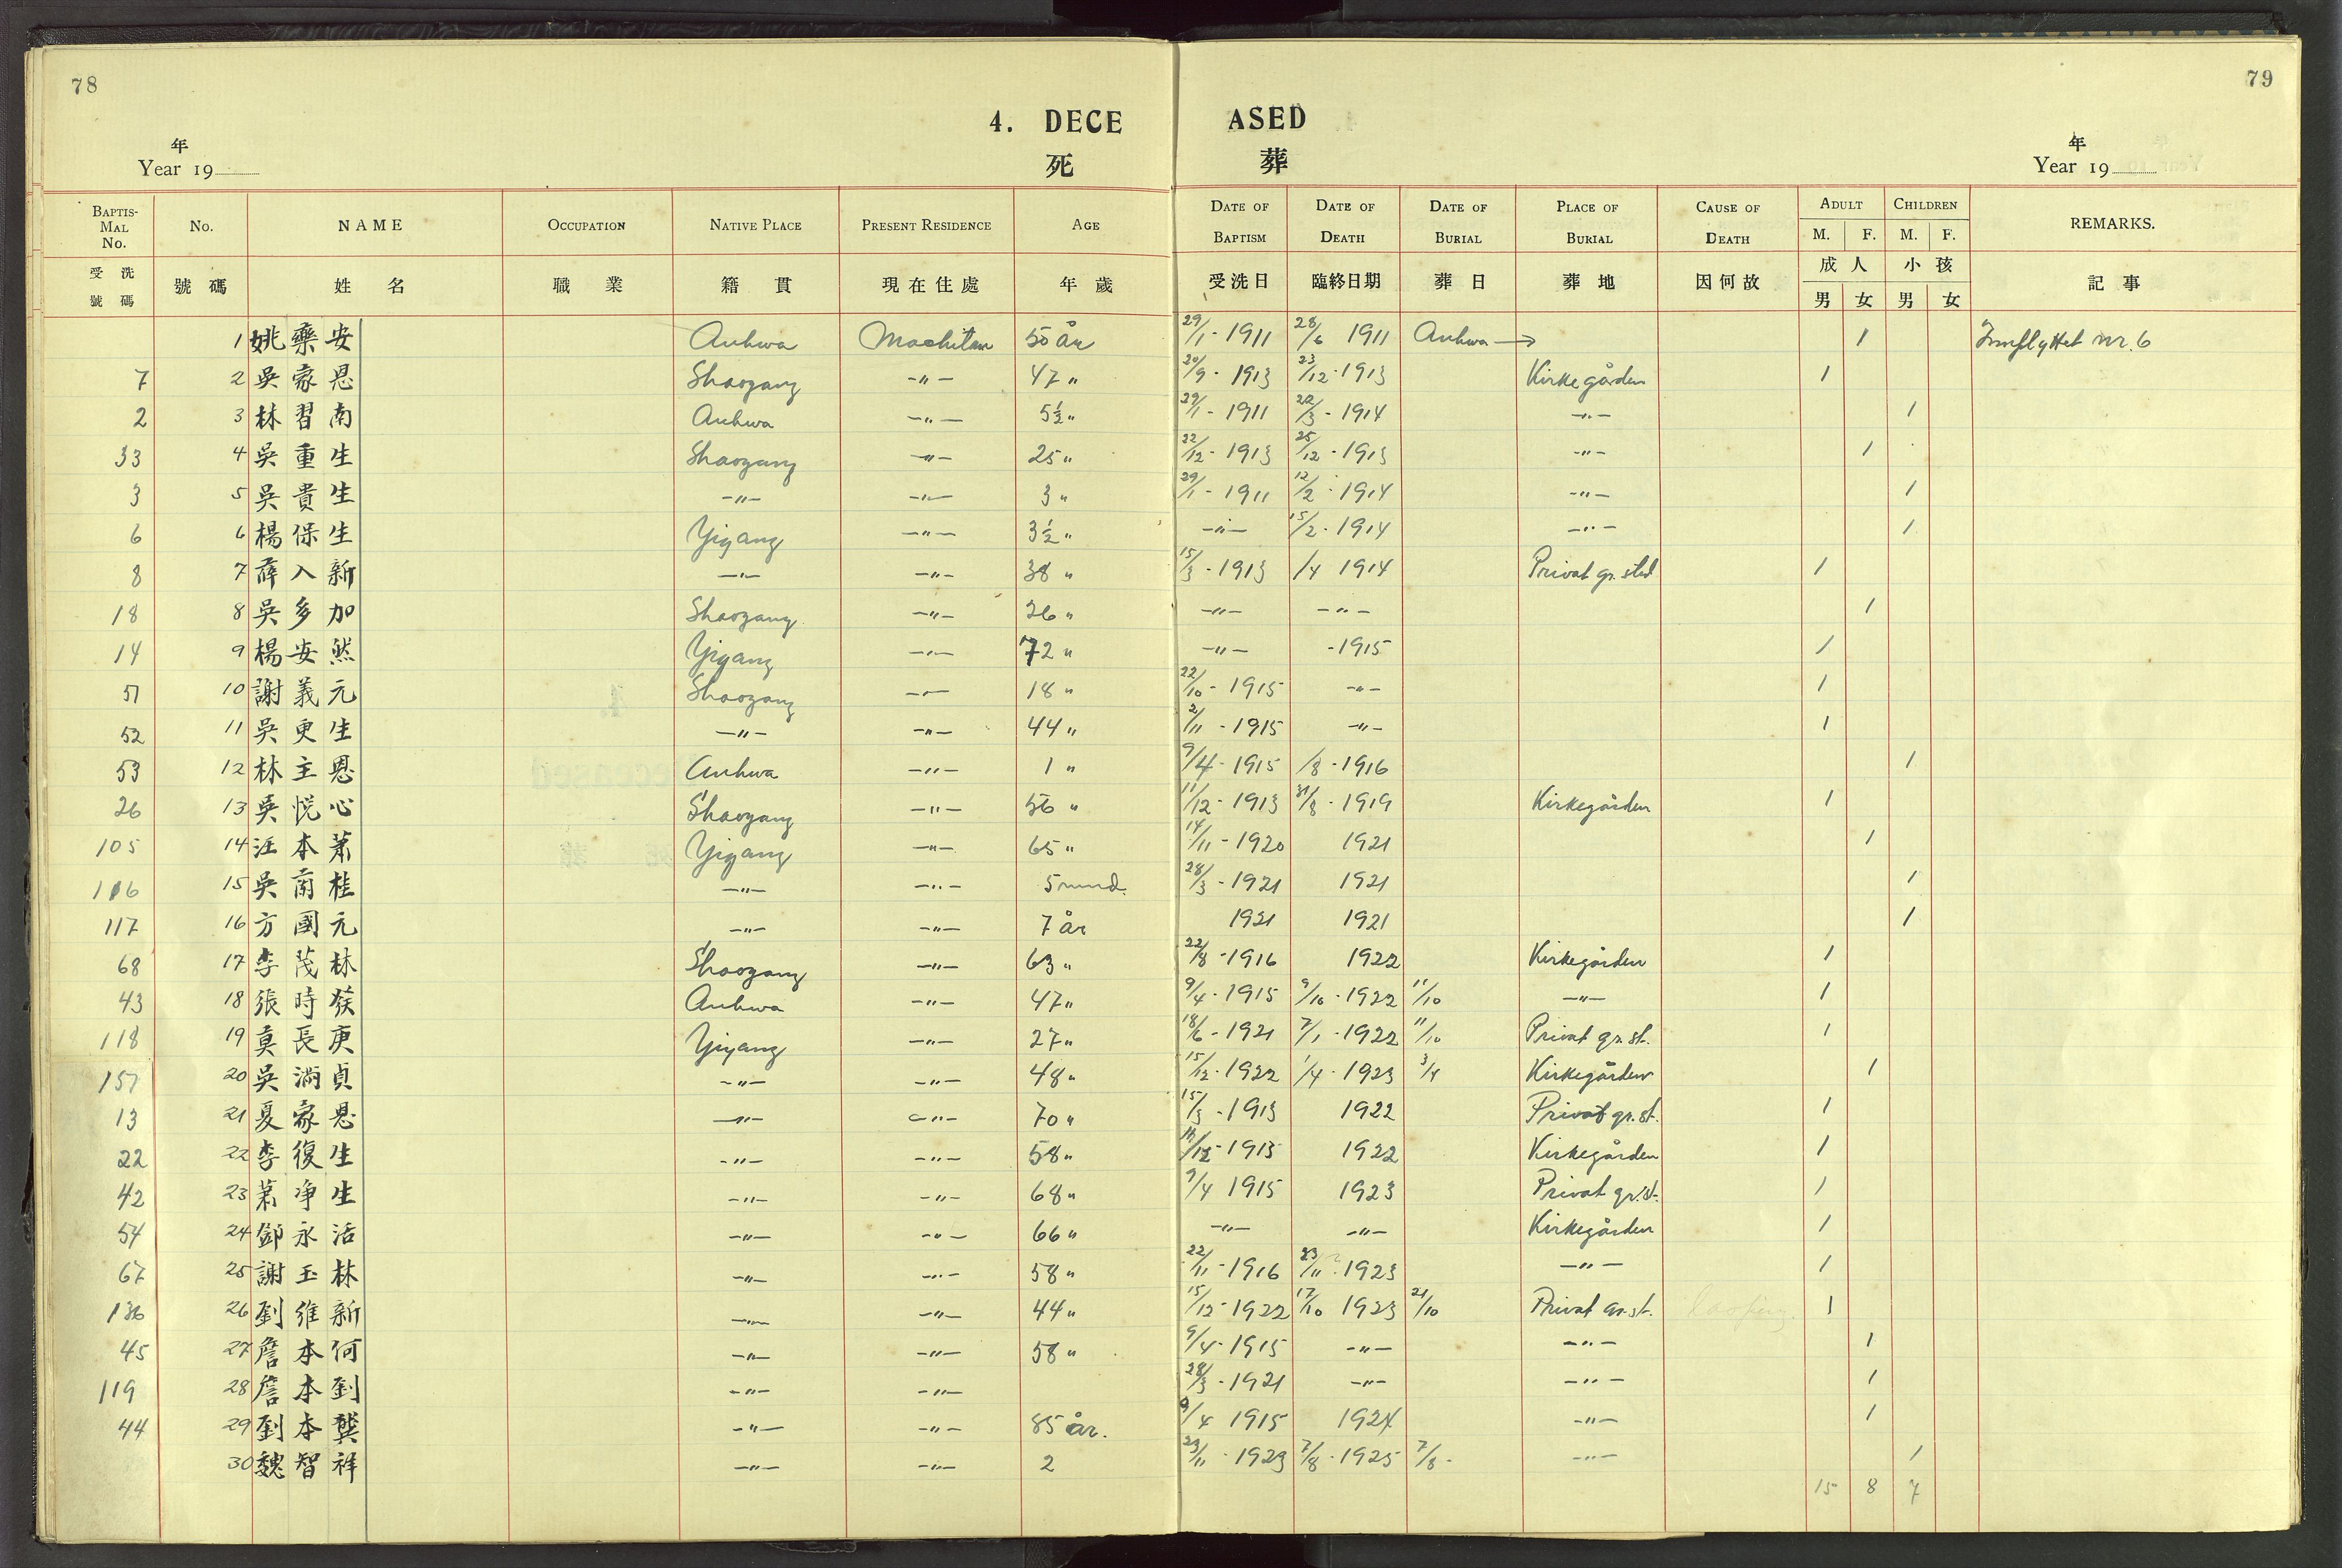 78
79
4. DECEASED
死 葬
年
Year 19
年
Year 19
BAPTISMAL No. | No. | NAME | OCCUPATION | NATIVE PLACE | PRESENT RESIDENCE | AGE | DATE OF BAPTISM | DATE OF DEATH | DATE OF BURIAL | PLACE OF BURIAL | CAUSE OF DEATH | ADULT M. F. | CHILDREN M. F. | REMARKS.
受洗號碼 | 號碼 | 姓名 | 職業 | 籍貫 | 現在住處 | 年歲 | 受洗日 | 臨終日期 | 葬日 | 葬地 | 因何故 | 成人 男 女 | 小孩 男 女 | 記事
1 姚藥安 Anhwa Machitan 50 år 29/1 - 1911 28/6 1911 Anhwa → 1 Innflyttet nr. 6
7 2 吳家恩 Shaoyang -"- 47 " 20/9 - 1913 23/12 - 1913 Kirkegården 1
2 3 林習南 Anhwa -"- 5½ " 29/1 - 1911 22/3 - 1914 -"- 1
33 4 吳重生 Shaoyang -"- 25 " 22/12 - 1913 25/12 - 1913 -"- 1
3 5 吳貴生 -"- -"- 3 " 29/1 - 1911 12/2 - 1914 -"- 1
6 6 楊保生 Yiyang -"- 3½ " -"- 15/2 - 1914 -"- 1
8 7 薛入新 -"- -"- 38 " 15/3 - 1913 /4 1914 Privat gr. sted 1
18 8 吳多加 Shaoyang -"- 26 " -"- -"- 1
14 9 楊安然 Yiyang -"- 72 " -"- -1915 1
51 10 謝義元 Shaoyang -"- 18 " 22/10 - 1915 -"- 1
52 11 吳更生 -"- -"- 44 " 2/11 - 1915 -"- 1
53 12 林主恩 Anhwa -"- 1 " 9/4 - 1915 /8 - 1916 1
26 13 吳悦心 Shaoyang -"- 56 " 11/12 - 1913 31/8 - 1919 Kirkegården 1
105 14 汪本蕭 Yiyang -"- 65 " 14/11 - 1920 1921 1
116 15 吳蘭桂 -"- -"- 5 mnd. 28/3 - 1921 1921 1
117 16 方國元 -"- -"- 7 år 1921 1921 1
68 17 李茂林 Shaoyang -"- 63 " 22/8 - 1916 1922 Kirkegården 1
43 18 張時發 Anhwa -"- 47 " 9/4 - 1915 9/10 - 1922 11/10 -"- 1
118 19 莫長庚 Yiyang -"- 27 " 18/6 - 1921 7/1 - 1922 11/10 Privat gr. st. 1
157 20 吳滿貞 -"- -"- 48 " 15/12 - 1922 1/4 - 1923 3/4 Kirkegården 1
13 21 夏家恩 -"- -"- 70 " 15/3 - 1913 1922 Privat gr. st. 1
22 22 李復生 -"- -"- 58 " 11/12 - 1913 1922 Kirkegården 1
42 23 蕭净生 -"- -"- 68 " 9/4 1915 1923 Privat gr. st. 1
54 24 鄧永活 -"- -"- 66 " -"- -"- Kirkegården 1
67 25 謝玉林 -"- -"- 58 " 22/11 - 1916 23/11 - 1923 -"- 1
136 26 劉維新 -"- -"- 44 " 15/12 - 1922 17/10 1923 21/10 Privat gr. st. 1
45 27 詹本何 -"- -"- 58 " 9/4 - 1915 -"- -"- 1
119 28 詹本劉 -"- -"- 28/3 - 1921 -"- -"- 1
44 29 劉本龔 -"- -"- 85 år. 9/4 1915 1924 -"- 1
30 魏智祥 -"- -"- 2 23/11 - 1923 7/8 - 1925 7/8 - -"- 1
15 8 7